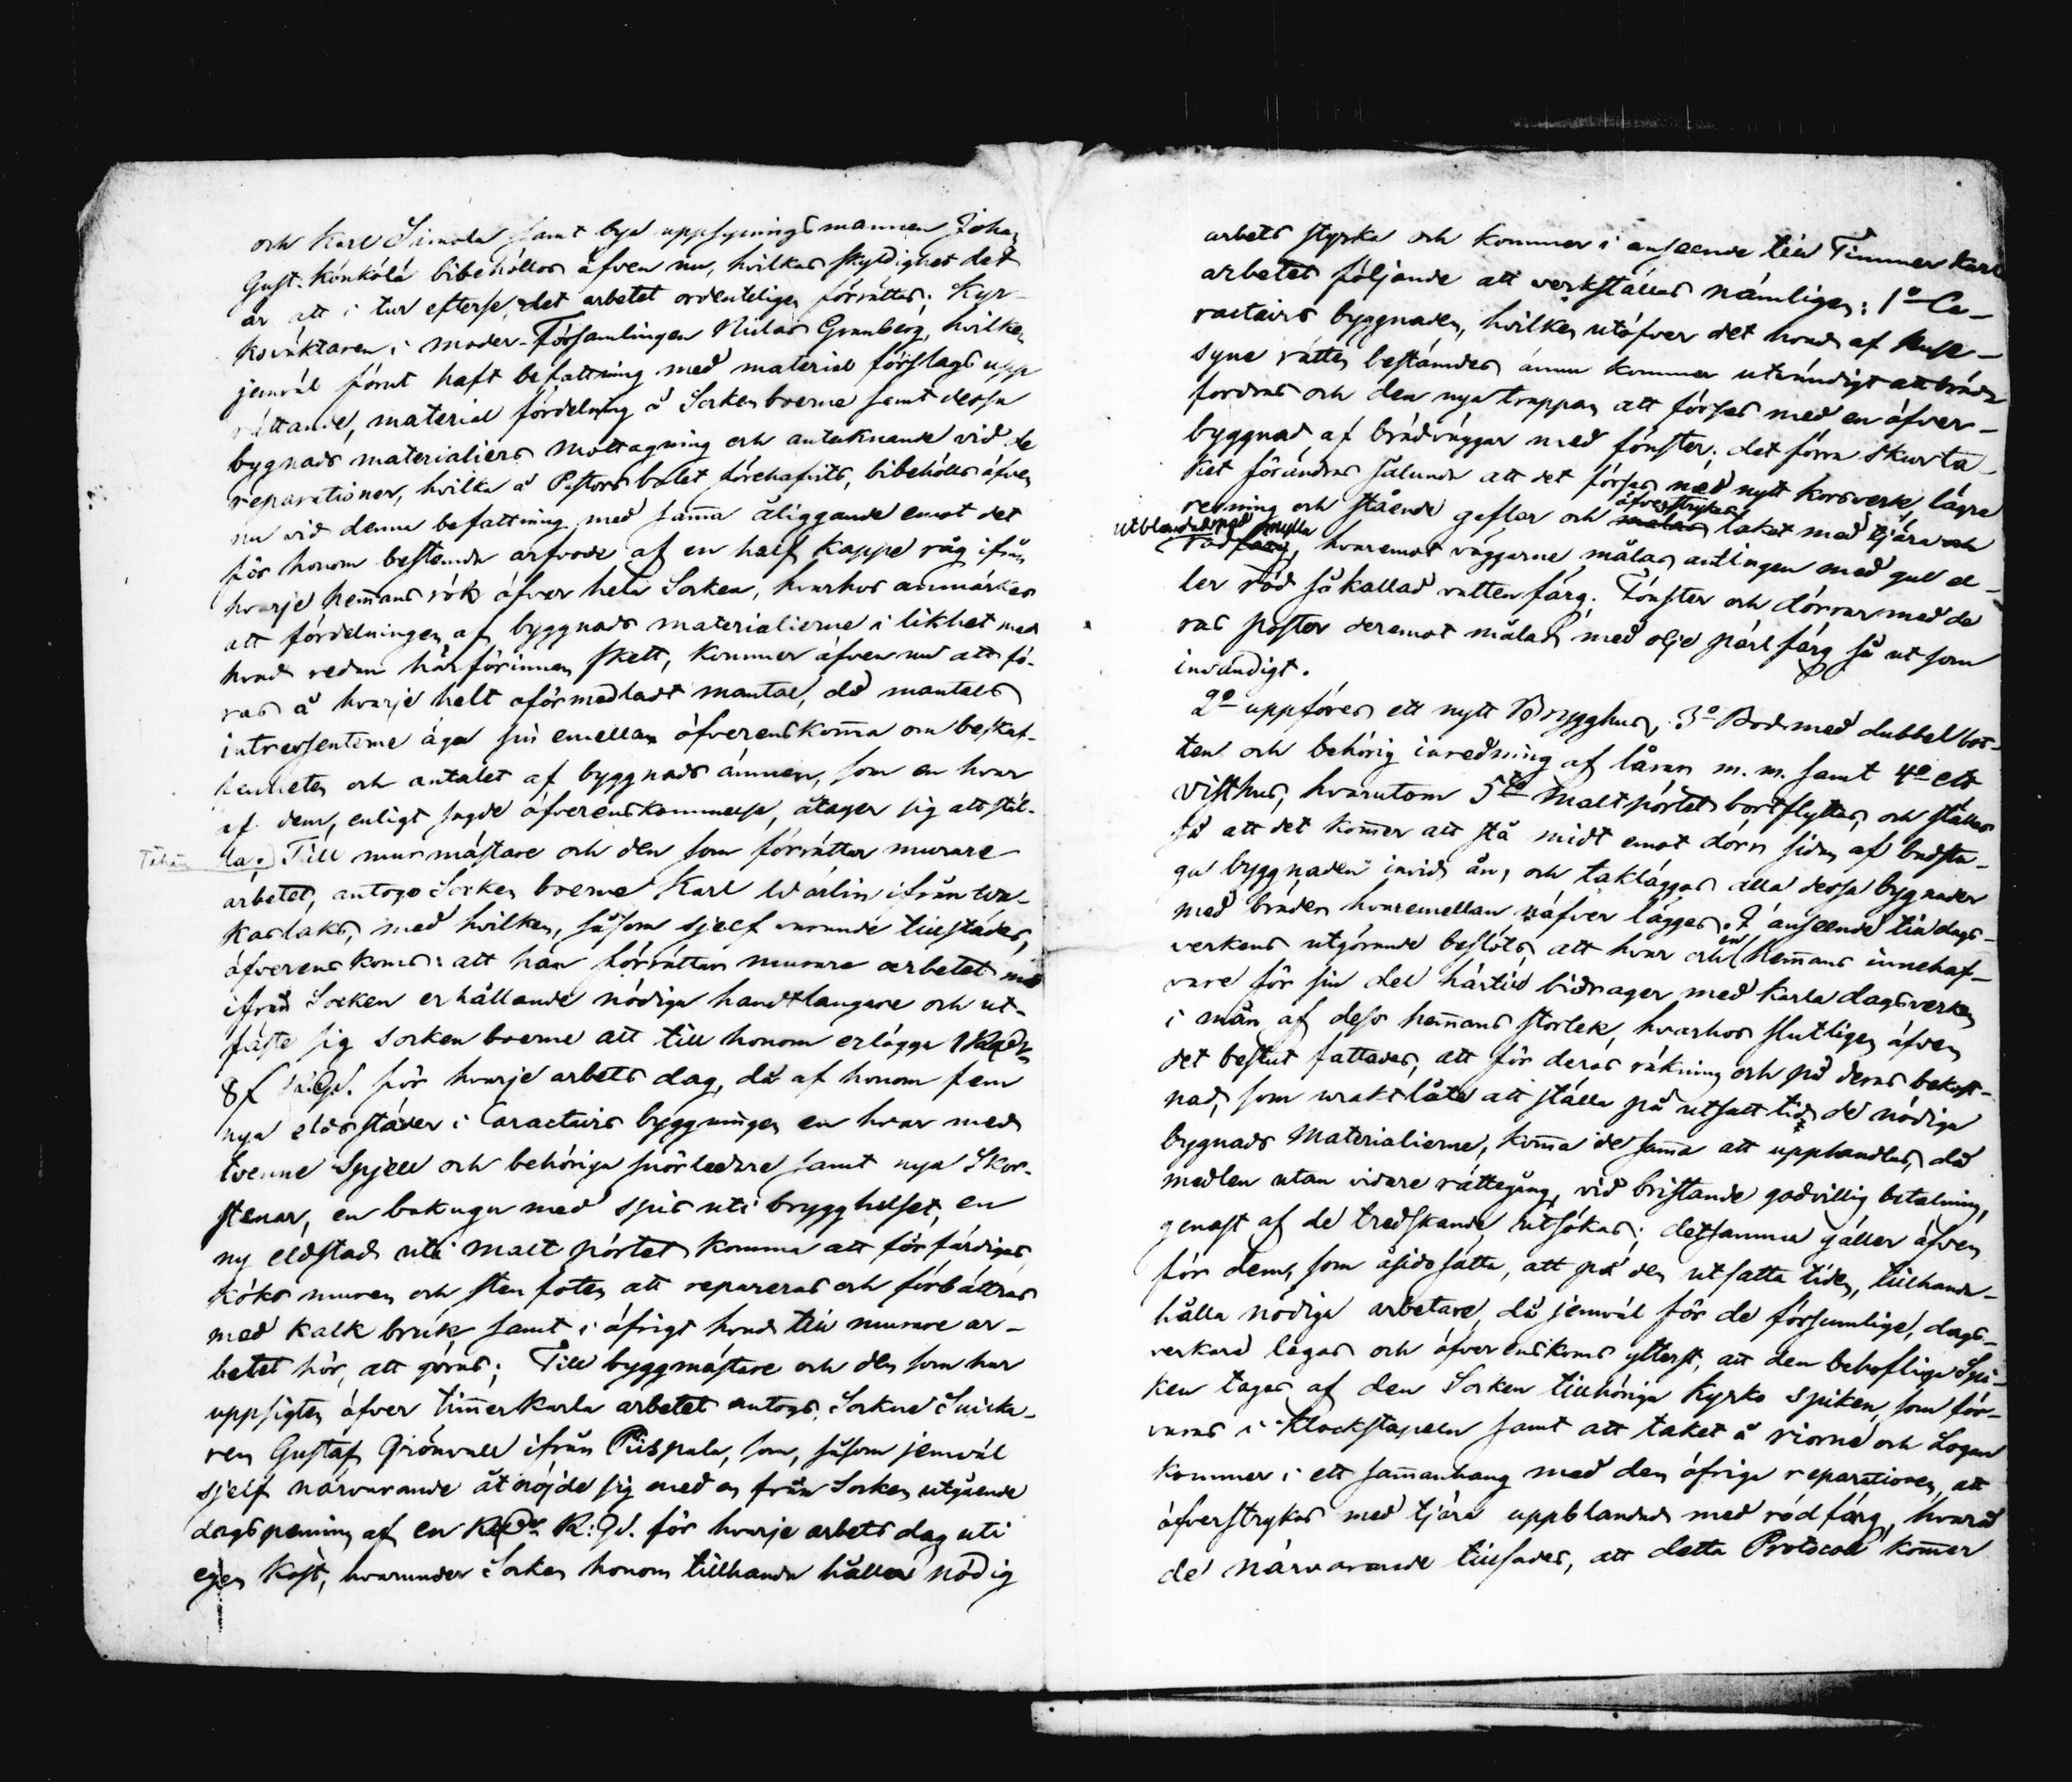 och Karl Simola samt bya uppsyningsmannen Johan
Gust: Könkölä bibehöllos äfven nu, hvilkas skyldighet det
är att i tur efterse, det arbetet ordenteligen förrättas; Kyr-
kovaktaren i moder-Församlingen Niclas Granberg, hvilken
jemväl förut haft befattning med material förslags upp
rättande, material fördelning å Sockenboerne samt dessa
bygnads materialiers mottagning och antecknande vid de
reparationer, hvilka å Pastorsbolet förehafvits, bibehölls äfven
nu vid denna befattning med sama åliggande emot det
för honom bestämda arfvode af en half kappe råg ifrån
hvarje hemans rök öfver hela Socken, hvarhos anmärkes
att fördelningen af byggnads materialierne i likhet med
hvad redan härförinnan skett, kommer äfven nu att fö-
ras å hvarje helt oförmedladt mantal, då mantals
intressenterne äga sin emellan öfverenskoma om beskaf-
fenheten och antalet af byggnads ämnen, som en hvar
af dem, enligt sagde öfverenskommelse, åtager sig att stäl-
la. Till murmästare och den som förrättar murare
arbetet, antogo Sockenboerne Karl Wärlin ifrån
kaslaks, med hvilken, såsom sjelf varande tillstädes,
öfverenskoms: att han förrättar murare arbetet med
ifrån Socken erhållande nödiga handtlangare och ut-
fäste sig sockenboerne att till honom erlägga 1 
8 f för hvarje arbets dag, då af honom fem
nya eldstäder i Caractairs byggningen en hvar med
tvenne Spjell och behöriga snörledare samt nya Skor-
stenar, en bakugn med spis uti brygghuset, en
ny eldstad uti malt pörtet komma att förfärdigas,
köks muren och stenfoten att repareras och förbättras
med kalk bruk samt i öfrigt hvad till murare ar-
betet hör, att göras; Till byggmästare och den som har
uppsigten öfver timerkarla arbetet antogs Sockne Snicka-
ren Gustaf Grönvall ifrån Piispala, som, såsom jemväl
sjelf närvarande åtnöjde sig med en från Socken utgående
dagspenning af en R:Gd. för hvarje arbets dag uti
egen kost, hvarunder Socken honom tillhanda håller nödig
arbets styrka och kommer i anseende till Timmerkarl
arbetet följande att verkställas nämligen: 1o Ca-
ractairs byggnaden, hvilken utöfver det hvad af Huse-
syne rätten bestämdes ännu kommer utvändigt att bräd
fordras och den nya trappan att förses med en öfver-
byggnad af brädväggar med fönster; det förra skurta-
ket förändras sålunda att det förses med nytt korsverk, lägre
resning och stående gaflar och målas öfverstrykes taket med tjära och
utblandad med mylla
röd färg, hvaremot väggarne målas antingen med gul el-
ler röd så kallad vattenfärg. Fönster och dörrar med de
ras poster deremot målas med olje pärlfärg så ut som
invändigt.
2o uppföres ett nytt Brygghus, 3o Bod med dubbel bot-
ten och behörig inredning af lårar m. m. samt 4o ett
visthus, hvarutom 5to maltpörtet bortflyttas, och ställes
så att det komer att stå midt emot dörr sidan af badstu-
gu byggnaden invid ån, och takläggas alla dessa bygnader
med bräder hvaremellan näfver lägges. I anseende till dags-
verkens utgörande beslöts, att hvar och en hemans innehaf-
vare för sin del härtill bidrager med karla dagsverken
i mån af dess hemans storlek, hvarhos slutligen äfven
det beslut fattades, att för deras räkning och på deras bekost-
nad, som vraktlåta att ställa på utsatt tid de nödiga
bygnads Materialierne, koma de sama att upphandlas, då
medlen utan vidare rättegång, vid bristande godvillig betalning,
genast af de tredskande utsökas; detsamma gäller äfven
för dem, som åsidosätta, att på den utsatta tiden, tillhanda-
hålla nödiga arbetare, då jemväl för de försumlige, dags-
verkare legas och öfverenskoms ytterst, att den behöfliga Spi-
ken tages af den Socken tillhöriga Kyrko spiken, som för-
varas i Klockstapeln samt att taket å riorne och Logan
kommer i ett samanhang med den öfriga reparationen, att
öfverstrykas med tjära uppblandad med rödfärg, hvard
de närvarande tillsades, att detta Protocoll komer